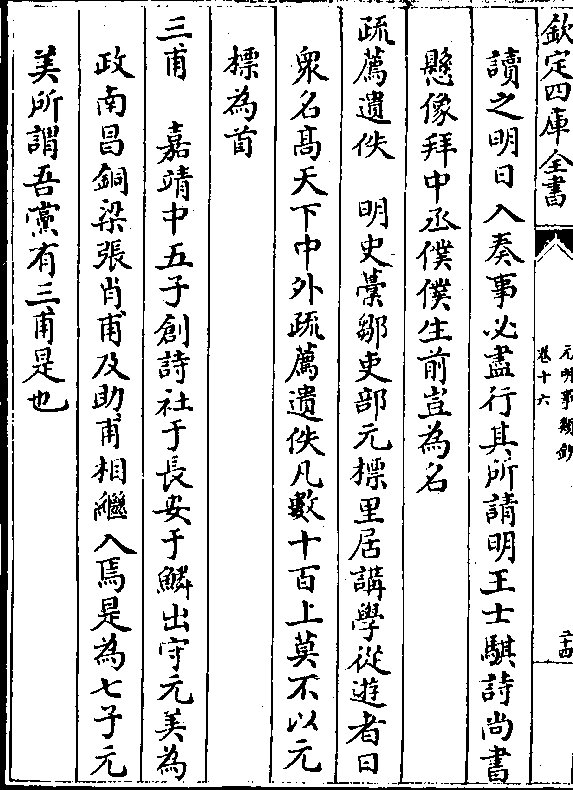 欽定四庫全書
元明事類鈔
卷十六
二十四
讀之明日入奏事必盡行其所請明王士騏詩尚書
懸像拜中丞僕僕生前豈為名
疏薦遺佚　明史藁鄒吏部元標里居講學從遊者日
衆名髙天下中外疏薦遺佚凡數十百上莫不以元
標為首
三甫　嘉靖中五子創詩社于長安于鱗出守元美為
政南昌銅梁張肖甫及助甫相繼入焉是為七子元
美所謂吾黨有三甫是也